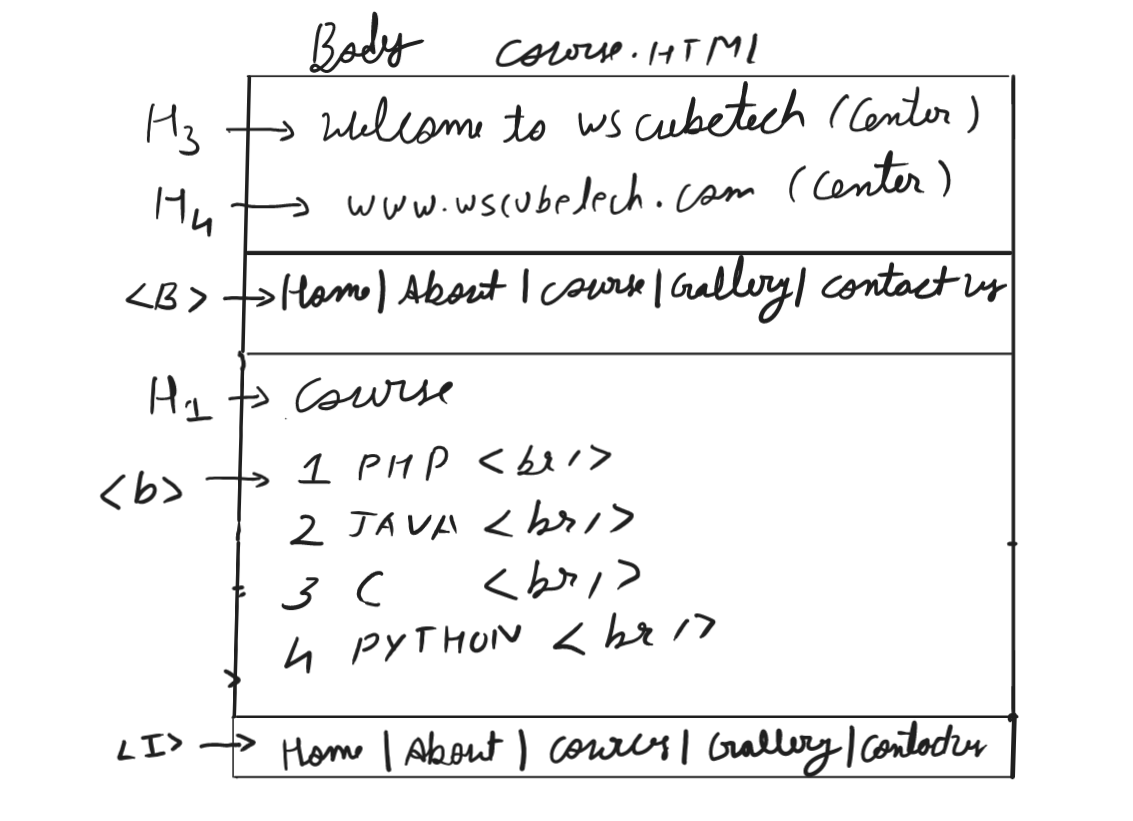 Body course.HTMl
H3 → Welcome to wscubetech (Center)
H4 → www.wscubetech.com (Center)
<B> → Home | About | course | Gallery | contact us
H1 → Course
<b> → 1 PHP <br/>
2 JAVA <br/>
3 C <br/>
4 PYTHON <br/>
<I> → Home | About | Gallery | Contactus